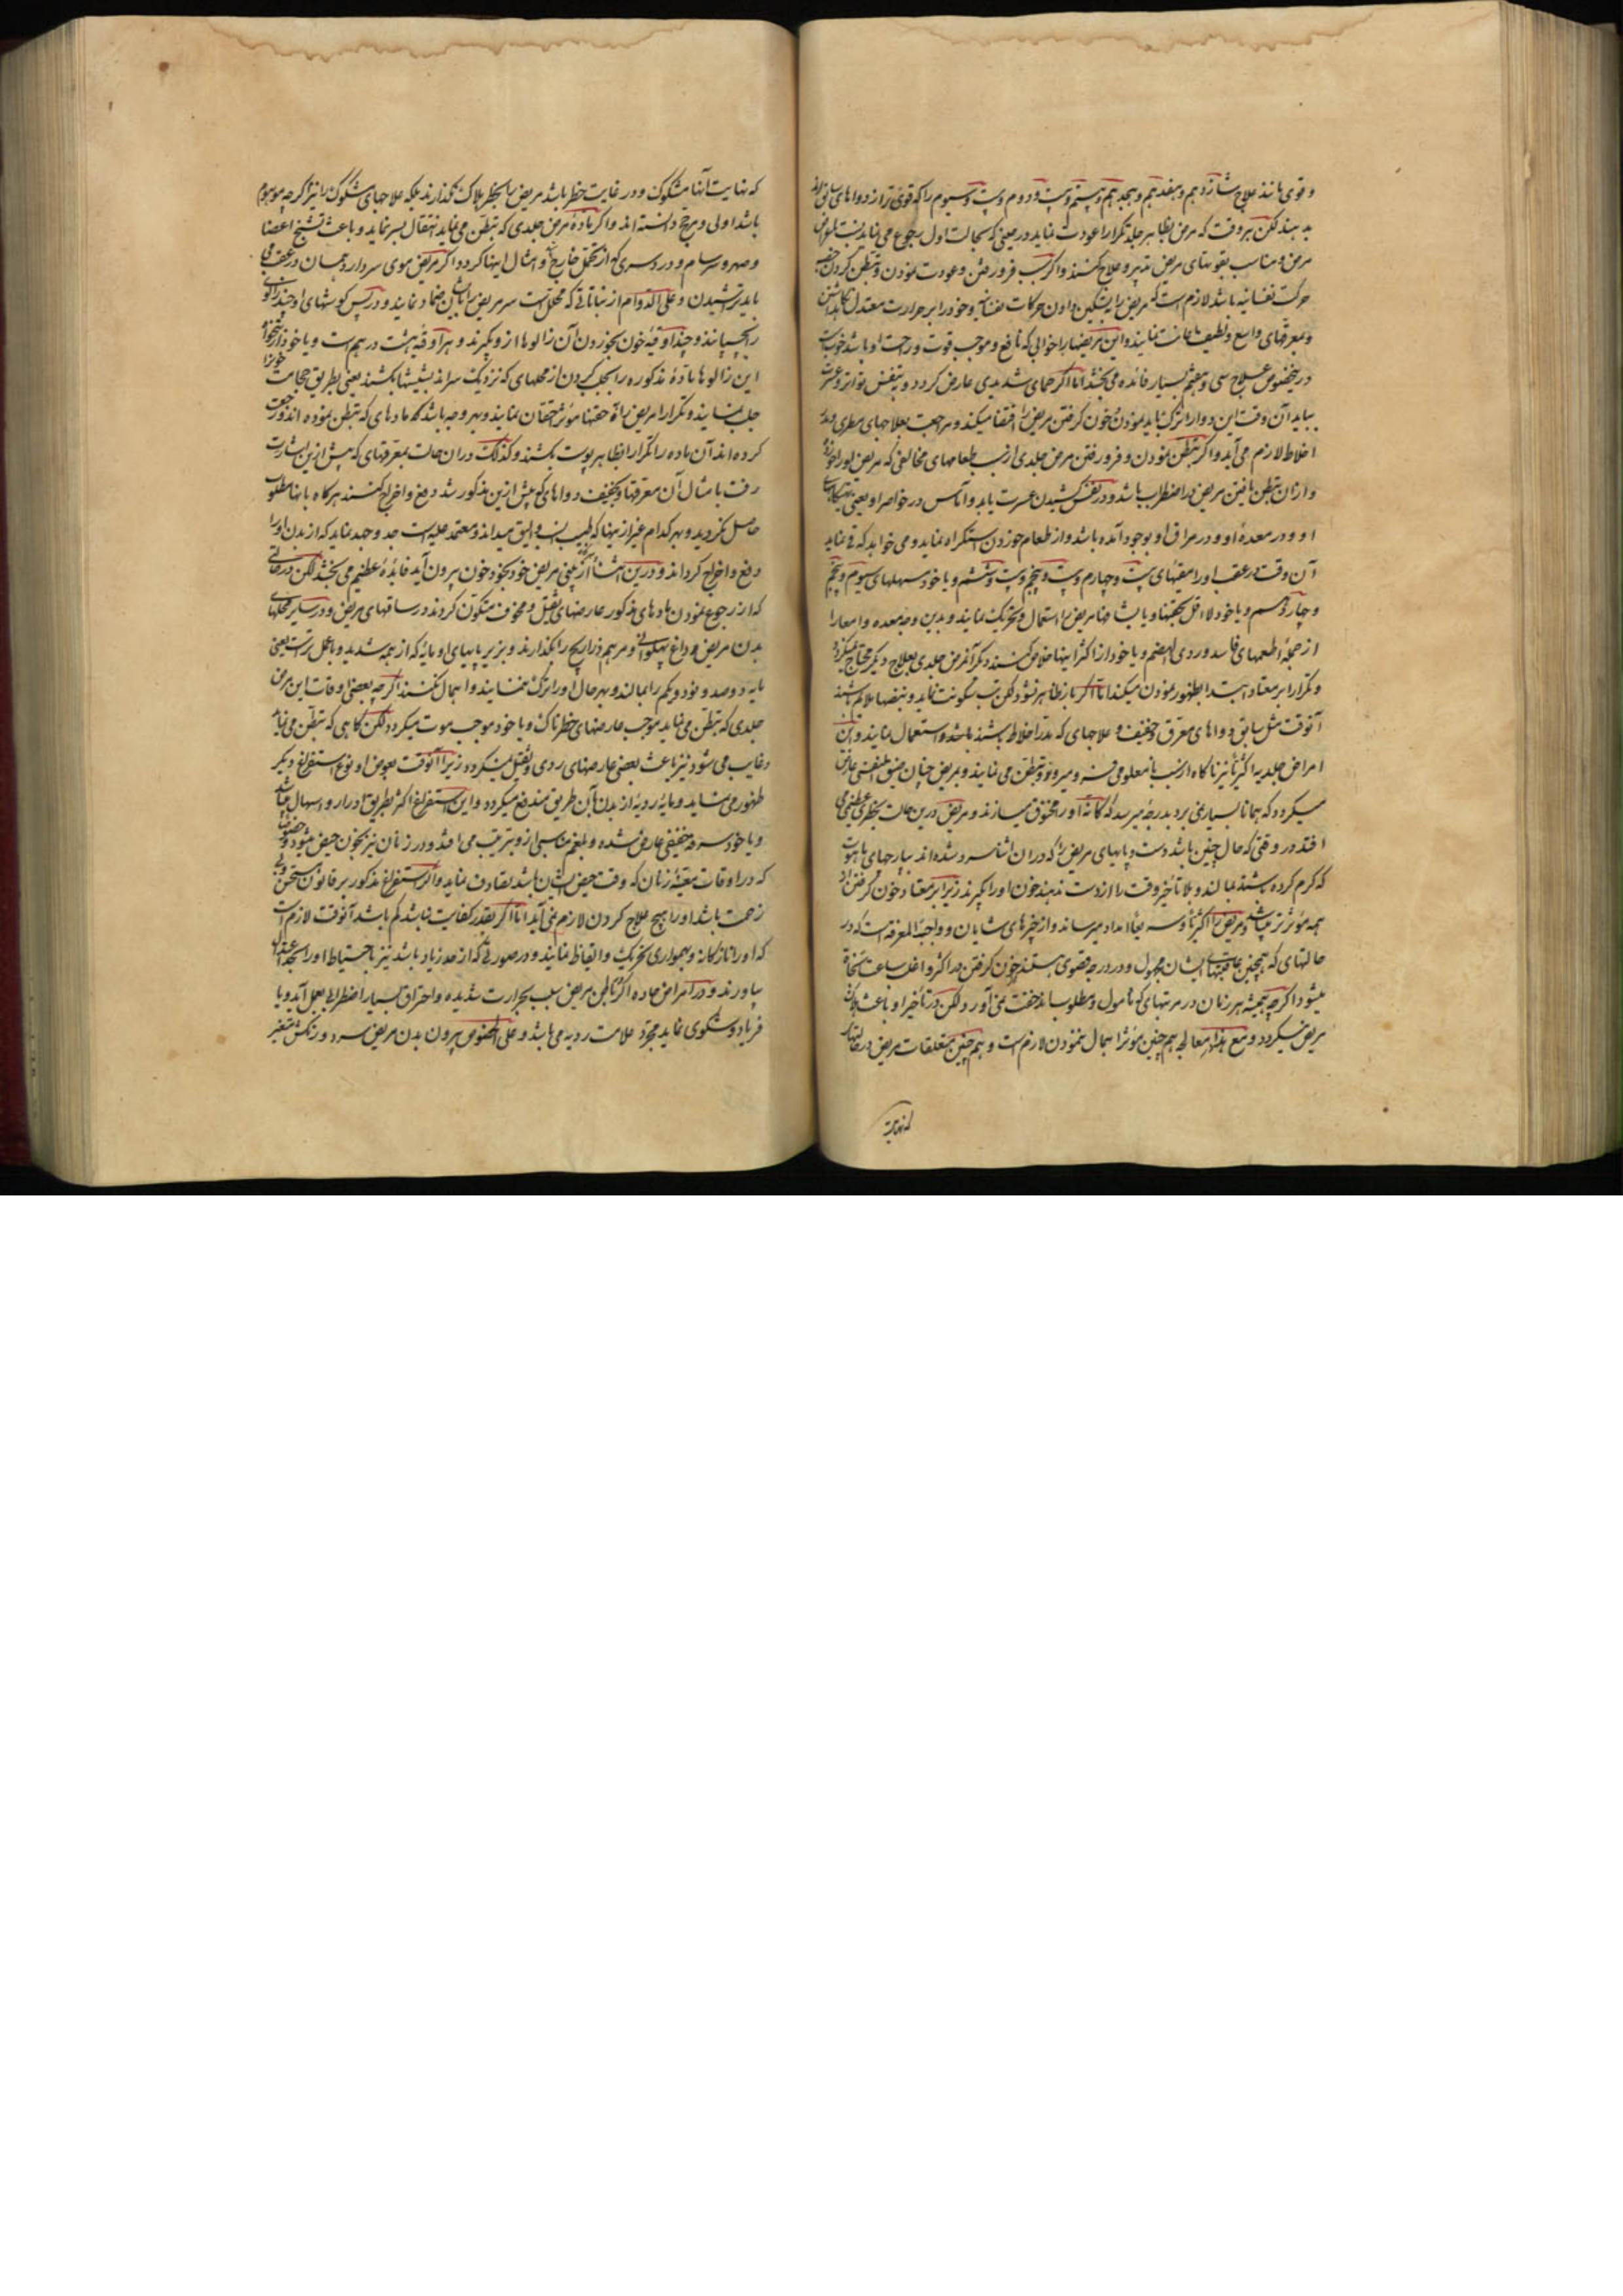 و قوی مانند علاج شانزدهم و هفدهم و هجدهم و بیستم و بیست و دوم و بیست و سیوم را که قوی‌تر از دواهای سابق‌اند
بدهند لکن هر وقت که مرض بظاهر جلد تکرارا عودت نماید در معنی که بحالت اول رجوع می‌نماید
مرض و مناسب بقوتهای مریض تدبیر و علاج کنند و اگر سبب فرو رفتن و عودت نمودن و تبطن کردن
حرکت نفسانیه باشد لازم است که مریض را بتسکین دادن حرکات نفسانیه و خود را بر حرارت معتدل نگاه داشتن
و بمعرقهای واسع و لطیف اعانت نمایند و این مریضها را خوابی که نافع و موجب قوت و راحت او باشد خوب است
در خصوص علاج سی و هفتم بسیار فائده می‌بخشد اما اگر حمای شدیدی عارض گردد و بتنفس تواتر و عسرت
بیاید آن وقت این دوا را ترک باید نمودن خون گرفتن مریض را اقتضا میکند و مراجعت بعلاجهای
اخلاط لازم می‌آید و اگر تبطن نمودن و فرو رفتن مرض جلدی از سبب طعامهای مخالفی که مریض او را خورده
و از آن تبطن یافتن مریض در اضطراب باشد و در نفس کشیدن عسرت یابد و آماس در خواصر او یعنی
او و در معدهٔ او و در مراق او بوجود آمده باشد و از طعام خوردن استکراه نماید و می‌خواهد که قی نماید
آن وقت در عقب او را مقیئهای بیست و چهارم و بیست و پنجم و بیست و ششم و یا خود مسهلهای سیوم و پنجم
و چهاردهم و یا خود لااقل بحقنها و یا بشیافها مریض را استعمال و تحریک نمایند و بدین وجه معده و امعا را
از جمله اطعمهای فاسد و ردی الهضم و یا خود از اکثر اینها خلاص کنند دیگر آن مرض جلدی بعلاج دیگر محتاج نمیگردد
و تکرارا بر معتاد ابتدا بظهور نمودن میکند اما اگر باز ظاهر نشود لکن تب سکونت نماید و نبضها ملایم باشند
آنوقت مثل سابق دواهای معرق خفیف و علاجهای که مدر اخلاط باشند باشد و استعمال نمایند و این
امراض جلدیه اکثریا نیز ناگاه از سبب نامعلومی فرو میرود و تبطن می‌نمایند و بمریض چنان ضیق النفسی عارض
میگردد که همانا بسیاری نمی‌برد بدرجه میرسد که کأنه او را مختوق میسازند و مریض درین حالت بخطری عظیم می
افتد در وقتی که حال چنین باشد دست و پایهای مریض را که در آن اثنا سرد شده‌اند بپارچهای ماهوت
که گرم کرده باشند بمالند و بلا تأخیر وقت را از دست ندهند خون او را بگیرند زیرا بر معتاد خون گرفتن از
همه مؤثرتر میباشد و مریض را اکثریا و سریعا امداد میرساند و از چیزهای شایان و واجبة المعرفه است که در
حالتهای که همچنین عاقبتهای ایشان مجهول و در درجه قصوی هستند خون گرفتن در اکثر و اغلب ساعت
میشود اگرچه همیشه هر زمان در مرتبهای که مأمول و مطلوبست خفت نمی‌آورد لکن در تأخیر او باعث هلاک
مریض میگردد و مع هذا در معالجه هم چنین مؤثر اهمال ننمودن لازم است و هم چنین متعلقات مریض در حالتهای
که نهایة
که نهایت آنها مشکوک و در غایت خطر باشد مریض را بخطر هلاک نگذارند بلکه علاجهای مشکوک را نیز اگرچه موهوم
باشد اولی و مرجح دانسته‌اند و اگر مادهٔ مرض جلدی که تبطن می‌نماید انتقال بسر نماید و باعث تشنج اعضا
و صرع و سرسام و دردسری که از تحمل خارج و امثال اینها گردد اگر مریض موی سر دارد همان در عقب می
باید تراشیدن و علی الدوام از نباتاتی که محلل است سر مریض را بآن ضماد نمایند و در پس گوشهای او چند زالوی
را بچسپانند و چند اوقیهٔ خون بخوردن آن زالوها از او بگیرند و هر اوقیهٔ هشت درهم است و یا خود
این زالوها مادهٔ مذکوره را بجلب کردن از محلهای که نزدیک سراند بشیشها بکشند یعنی بطریق حجامت
جلب نمایند و تکرارا مریض را بحقنهای مؤثر احتقان نمایند و بهر وجه باشد که مادهای که تبطن نموده‌اند و رجعت
کرده‌اند آن ماده را تکرارا بظاهر پوست بکشند و کذلک در آن حالت بمعرقهای که پیش ازین اشارت
رفت با مثال آن معرقها و بخفیف دواهای که پیش ازین مذکور شد دفع و اخراج کنند هرگاه باینها مطلوب
حاصل نگردید و بهر کدام غیر از اینها که طبیب انسب و الیق میداند و معتمد علیه است جد و جهد نماید که از بدن او را
دفع و اخراج گرداند و درین اثنا اگر از بینی مریض خود بخود خون بیرون آید فائدهٔ عظیم می‌بخشد لکن در حالتی
که از رجوع نمودن مادهای مذکور عارضهای ثقیل و مخوف متکون گردند در ساقهای مریض و در سایر محلهای
بدن مریض داغ پهلوانی و مرهم ذراریح را بگذارند و بزیر پایهای او مایهٔ که از همه شدید و با عمل تر است یعنی
مایه دوصد و نود و یکم را بمالند و بهر حال او را ترک ننمایند و اهمال نکنند اگرچه بعضی اوقات این مرض
جلدی که تبطن می‌نماید موجب عارضهای خطرناک و یا خود موجب موت میگردد لکن گاهی که تبطن می‌نماید
و غایب می‌شود نیز باعث بعضی عارضهای ردی و ثقیل نمیگردد زیرا آنوقت بعوض او نوع استفراغ دیگر
ظهور می‌نماید و مایهٔ ردیه از بدن بآن طریق مندفع میگردد و این استفراغ اکثر بطریق ادرار و اسهال میباشد
و یا خود سرفه خفیفی عارض شده و بلغم مناسبی از او بترتیب می‌افتد و در زنان نیز بخون حیض میشود خصوصا
که در اوقات معینهٔ زنان که وقت حیض ایشان باشد تصادف نماید و اگر استفراغ مذکور بر قانون مستحسن و بی
زحمت باشد او را هیچ علاج کردن لازم نمی‌آید اما اگر بقدر کفایت نباشد کم باشد آنوقت لازم است
که او را نازکانه و بهمواری تحریک و ایقاظ نمایند و در صورتی که از حد زیاد باشد نیز باحتیاط او را بحد اعتدال
بیاورند و در امراض حاده اگر باطن مریض بسبب حرارت شدیده و احتراق بسیار اضطرابی بعمل آید و یا
فریاد و شکوی نماید مجرد علامت ردیه می‌باشد و علی الخصوص بیرون بدن مریض سرد و رنگش متغیر